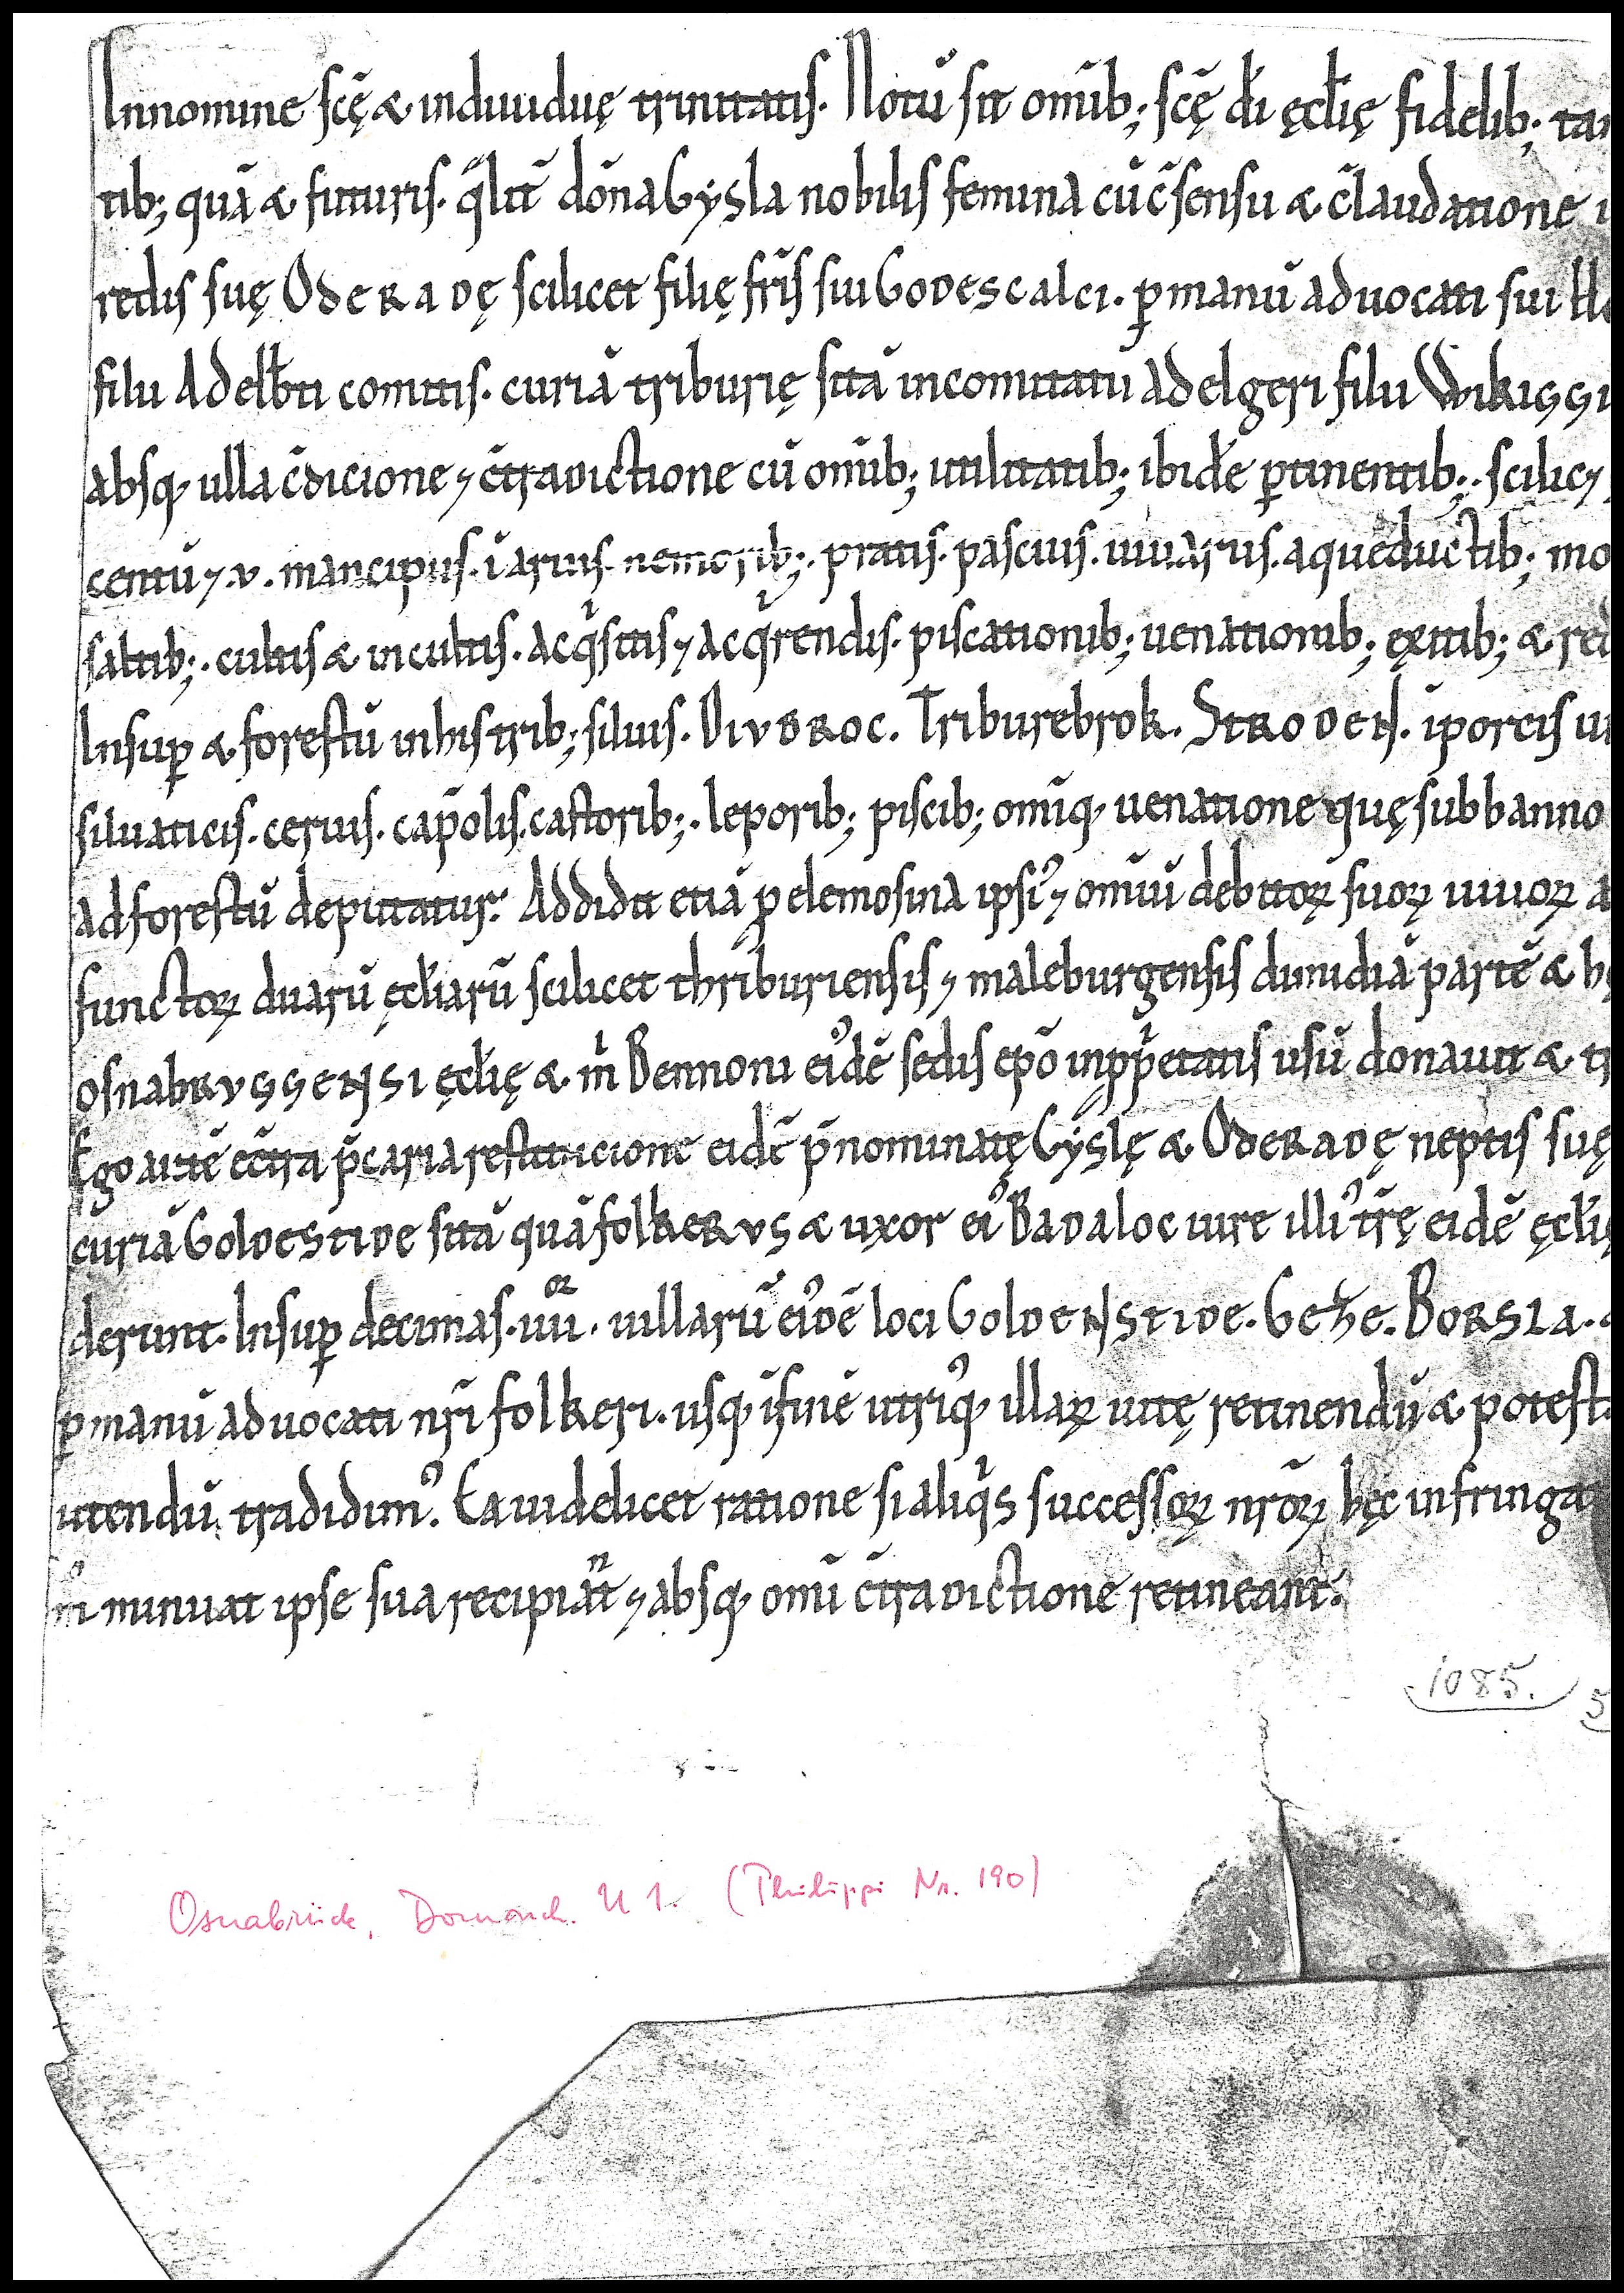 Innomine scę & indiuiduę trinitatis. Notū sit omīb; scę̄ dī ęcłię fidelib; tā
tib; quā & futuris. qͣlit̄ dōna Gysla nobilis femina cū c̄sensu & c̄laudatione
redis suę Oderadę scilicet filię fr̄is sui Godescalci. ꝑ manū aduocati sui
filii Adelbt̄i comitis. curiā triburię sitā incomitatu adelgeri filii Wikiggi
absq; ulla c̄dicione ⁊ c̄tradictione cū omīb; utilitatib; ibidē ꝑtinentib;. scilic⁊
centū ⁊ .v. mancipiis. ī aruis. nemorib;. pratis. pascuis. uiuariis. aquęductib; mo
saltib;. cultis & incultis. acqͥsitis ⁊ acqͥrendis. piscationib; uenationib; ęxitib; & red
Insuꝑ & forestū inhis trib; siluis. Divbroc. Triburebrok. Stroden. ī porcis
siluaticis. ceruis. cap̄olis. castorib;. leporib; piscib; omīq; uenatione quę sub banno
ad forestū deputatur. Addidit etiā ꝓ elemosina ipsiꝰ ⁊ omiū debitoꝝ suoꝝ uiuoꝝ
functoꝝ duarū ęcłiarū scilicet thriburiensis ⁊ maleburgensis dimidiā partē &
osnabrvggensi ęcłię & m̍ Bennoni eiꝰdē sedis ep̄o inꝓp̍etatis usū donauit & tr
Ego autē ec̄tra p̄caria restitucione eidē p̄nominatę Gyslę & Oderadę neptis suę
curiā Goldestide sitā quā folkervs & uxor eiꝰ Badaloc iure illiꝰ tr̄ę eidē ęcłię
derunt. Insuꝑ decimas. iiii ͦͬ. uillarū eiꝰdē loci Goldenstide. Gehe. Borsla.
ꝑ manū aduocati nr̄i folkeri. usq; ī finē utriꝰq; illaꝝ uitę retinendū & potest
utendū tradidimꝰ. Ea uidelicet ratione si aliqͥs successoꝝ nr̄oꝝ hęc infringat
minuat ipse sua recipiaⁿt ⁊ absq; omī c̄tradictione retineant.
1085.
5
Osnabrück, Domarch. U 1. (Philippi Nr. 190)